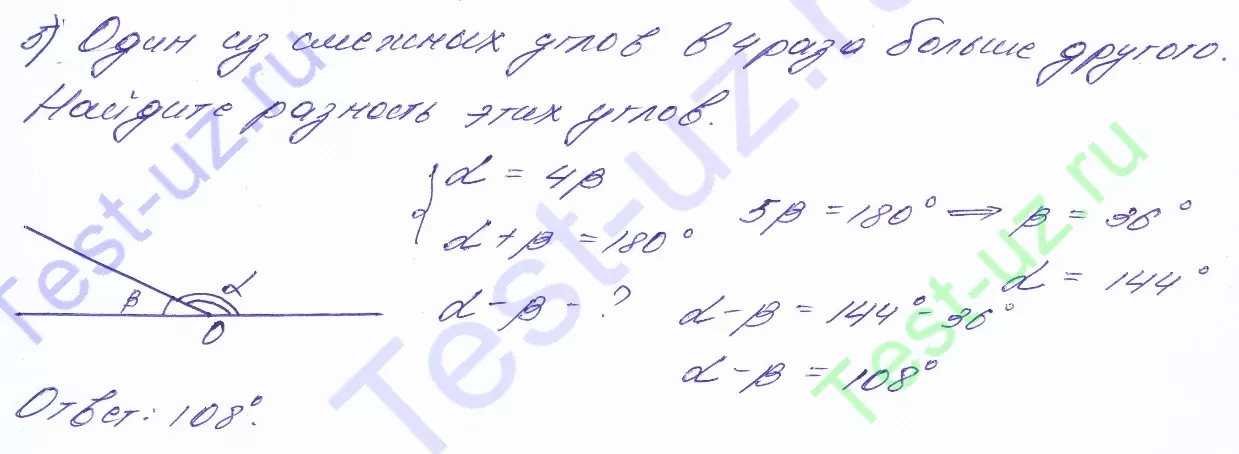 5) Один из смежных углов в 4 раза больше другого.
Найдите разность этих углов.
α = 4β
α + β = 180°
α - β - ?
5β = 180° ⟹ β = 36°
α = 144°
α - β = 144° - 36°
α - β = 108°
β α
O
Ответ: 108°.
Test-uz.ru
Test-uz.ru
Test-uz.ru
Test-uz.ru